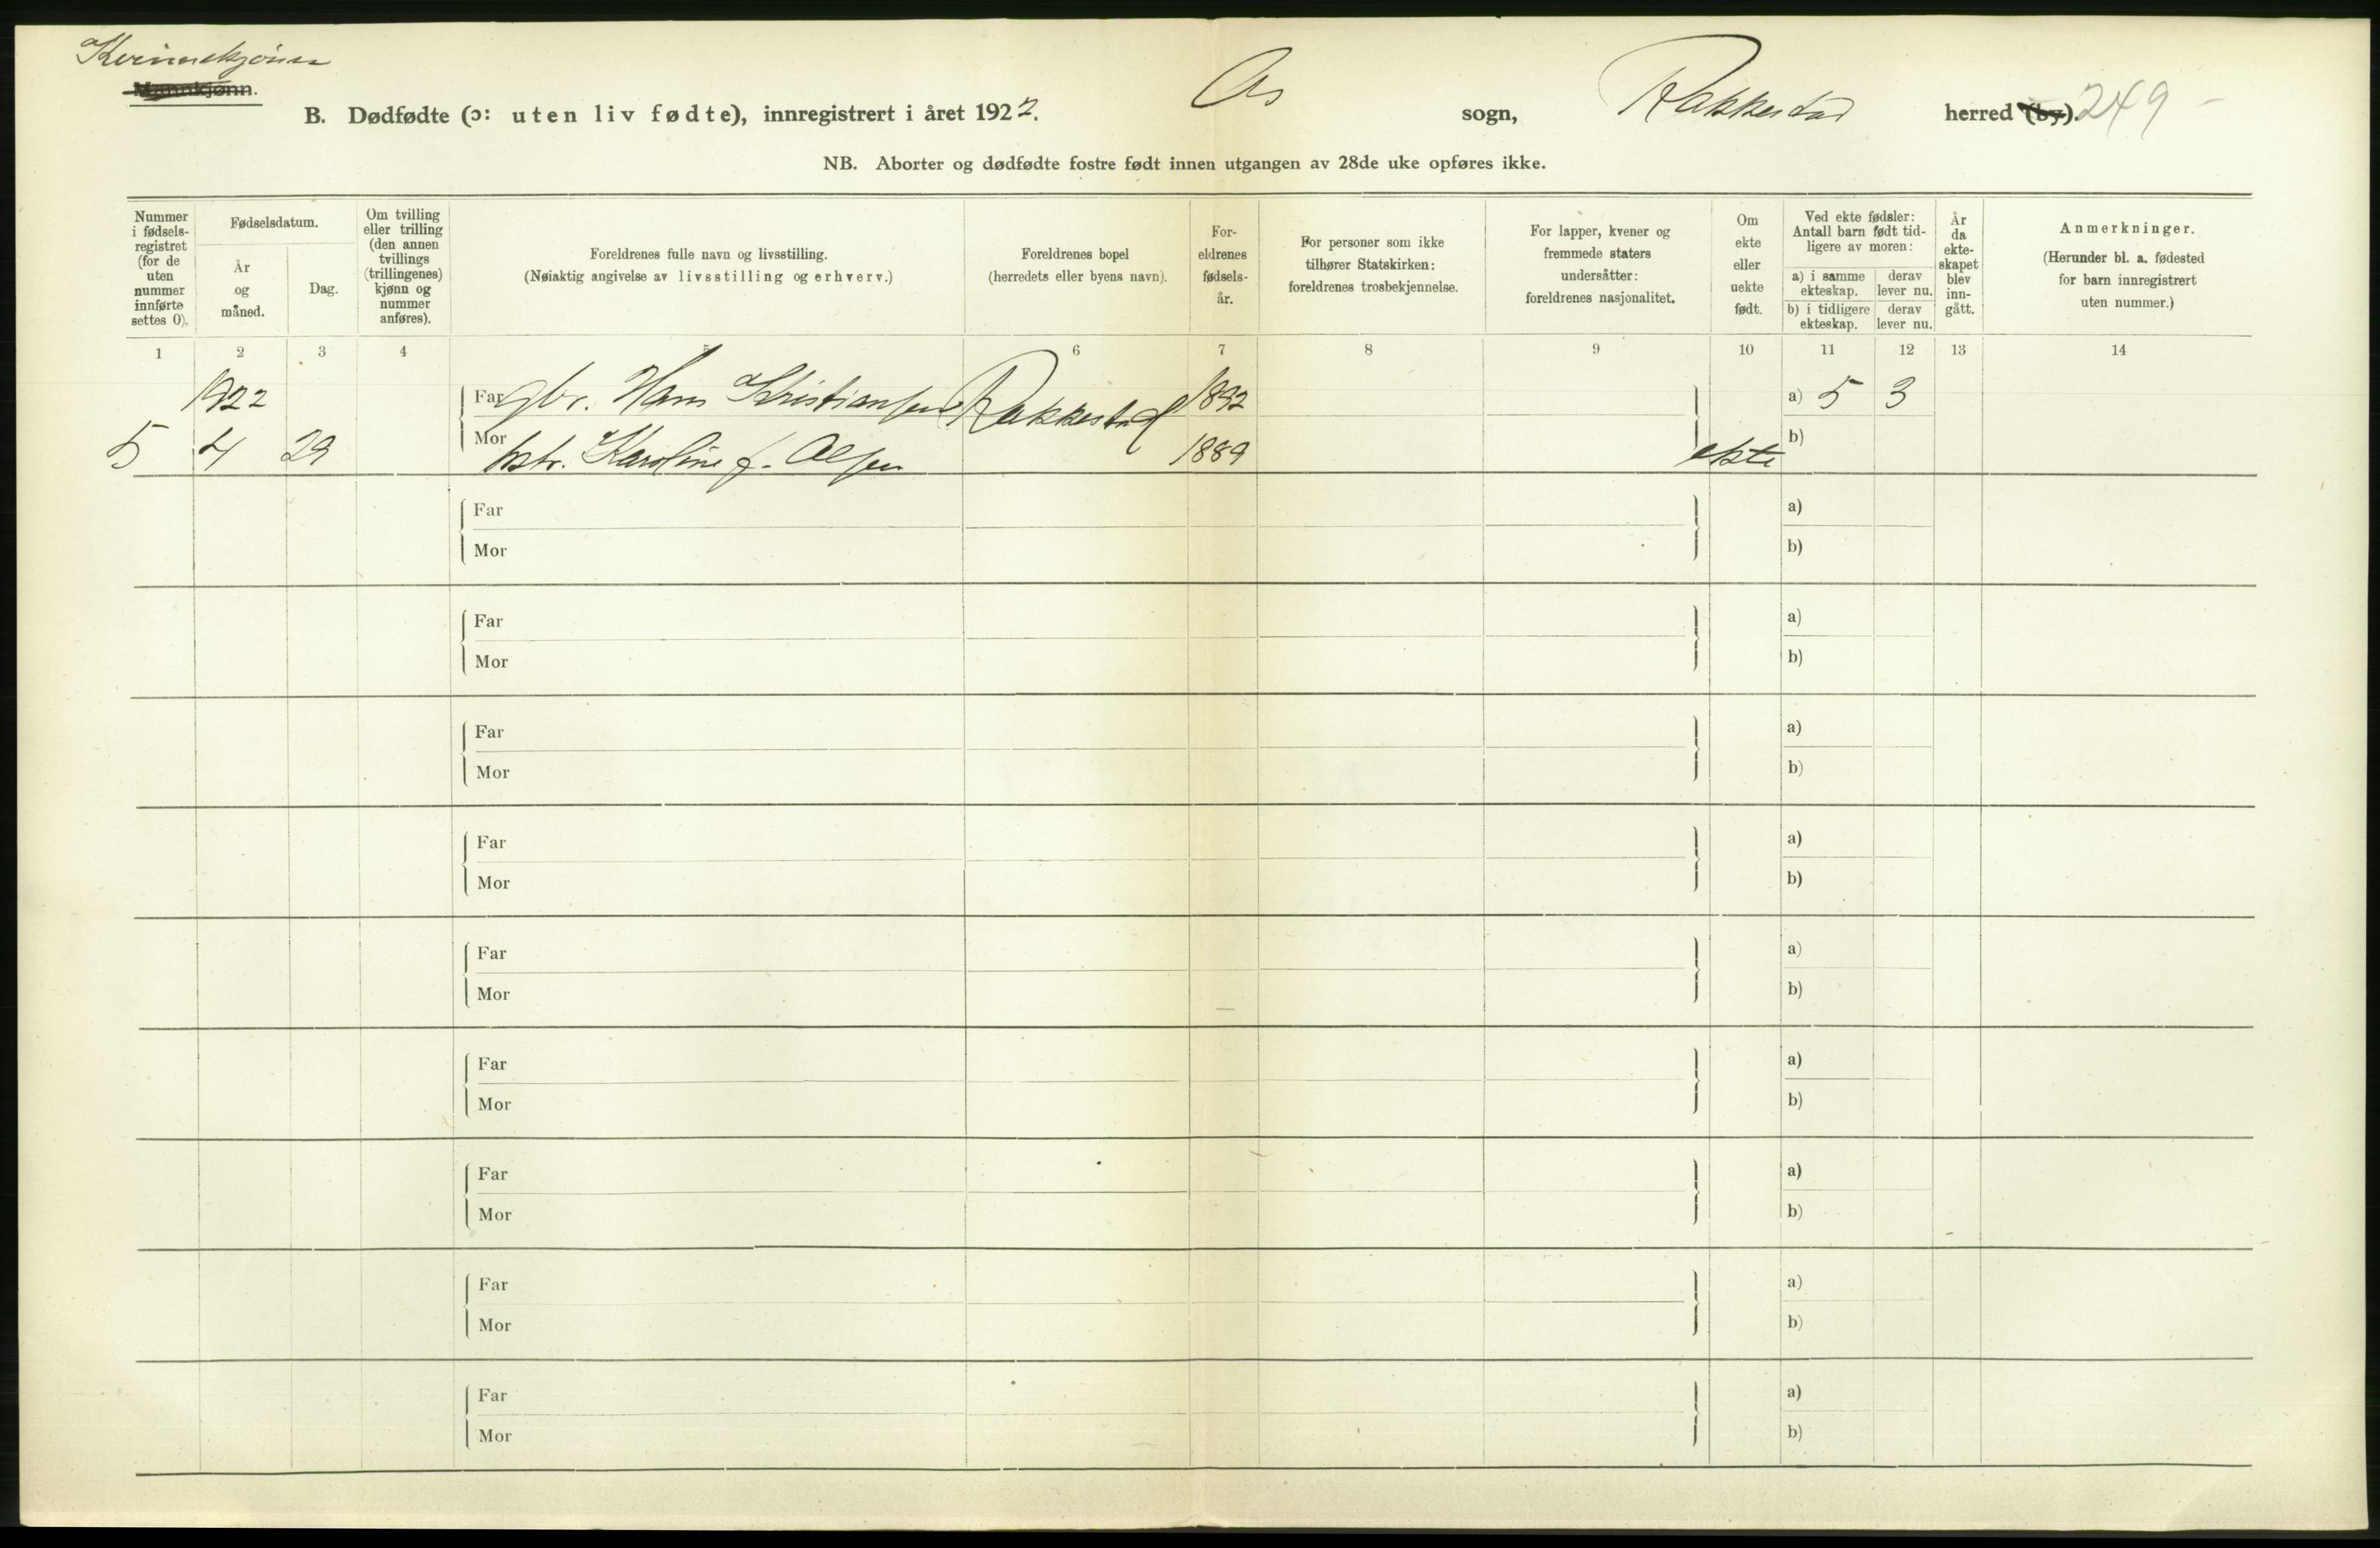 Kvinnekjønn
Mannkjønn.
B. Dødfødte (ɔ: uten liv fødte), innregistrert i året 1922. As sogn, Rakkestad herred (by). 249
NB. Aborter og dødfødte fostre født innen utgangen av 28de uke opføres ikke.
Nummer i fødsels-registret (for de uten nummer innførte settes 0).
Fødselsdatum.
År og måned.
Dag.
Om tvilling eller trilling (den annen tvillings (trillingenes) kjønn og nummer anføres).
Foreldrenes fulle navn og livsstilling.
(Nøiaktig angivelse av livsstilling og erhverv.)
Foreldrenes bopel
(herredets eller byens navn).
For-eldrenes fødsels-år.
For personer som ikke tilhører Statskirken: foreldrenes trosbekjennelse.
For lapper, kvener og fremmede staters undersåtter: foreldrenes nasjonalitet.
Om ekte eller uekte født.
Ved ekte fødsler: Antall barn født tid-ligere av moren:
a) i samme ekteskap. derav lever nu.
b) i tidligere ekteskap. derav lever nu.
År da ekte-skapet blev inn-gått.
Anmerkninger.
(Herunder bl. a. fødested for barn innregistrert uten nummer.)
1 2 3 4 5 6 7 8 9 10 11 12 13 14
1922 Far gbr. Hans Kristiansen Rakkestad 1892 a) 5 3
5 4 29 Mor hstr. Karoline f. Olsen 1889 ekte b)
Far a)
Mor b)
Far a)
Mor b)
Far a)
Mor b)
Far a)
Mor b)
Far a)
Mor b)
Far a)
Mor b)
Far a)
Mor b)
Far a)
Mor b)
Far a)
Mor b)